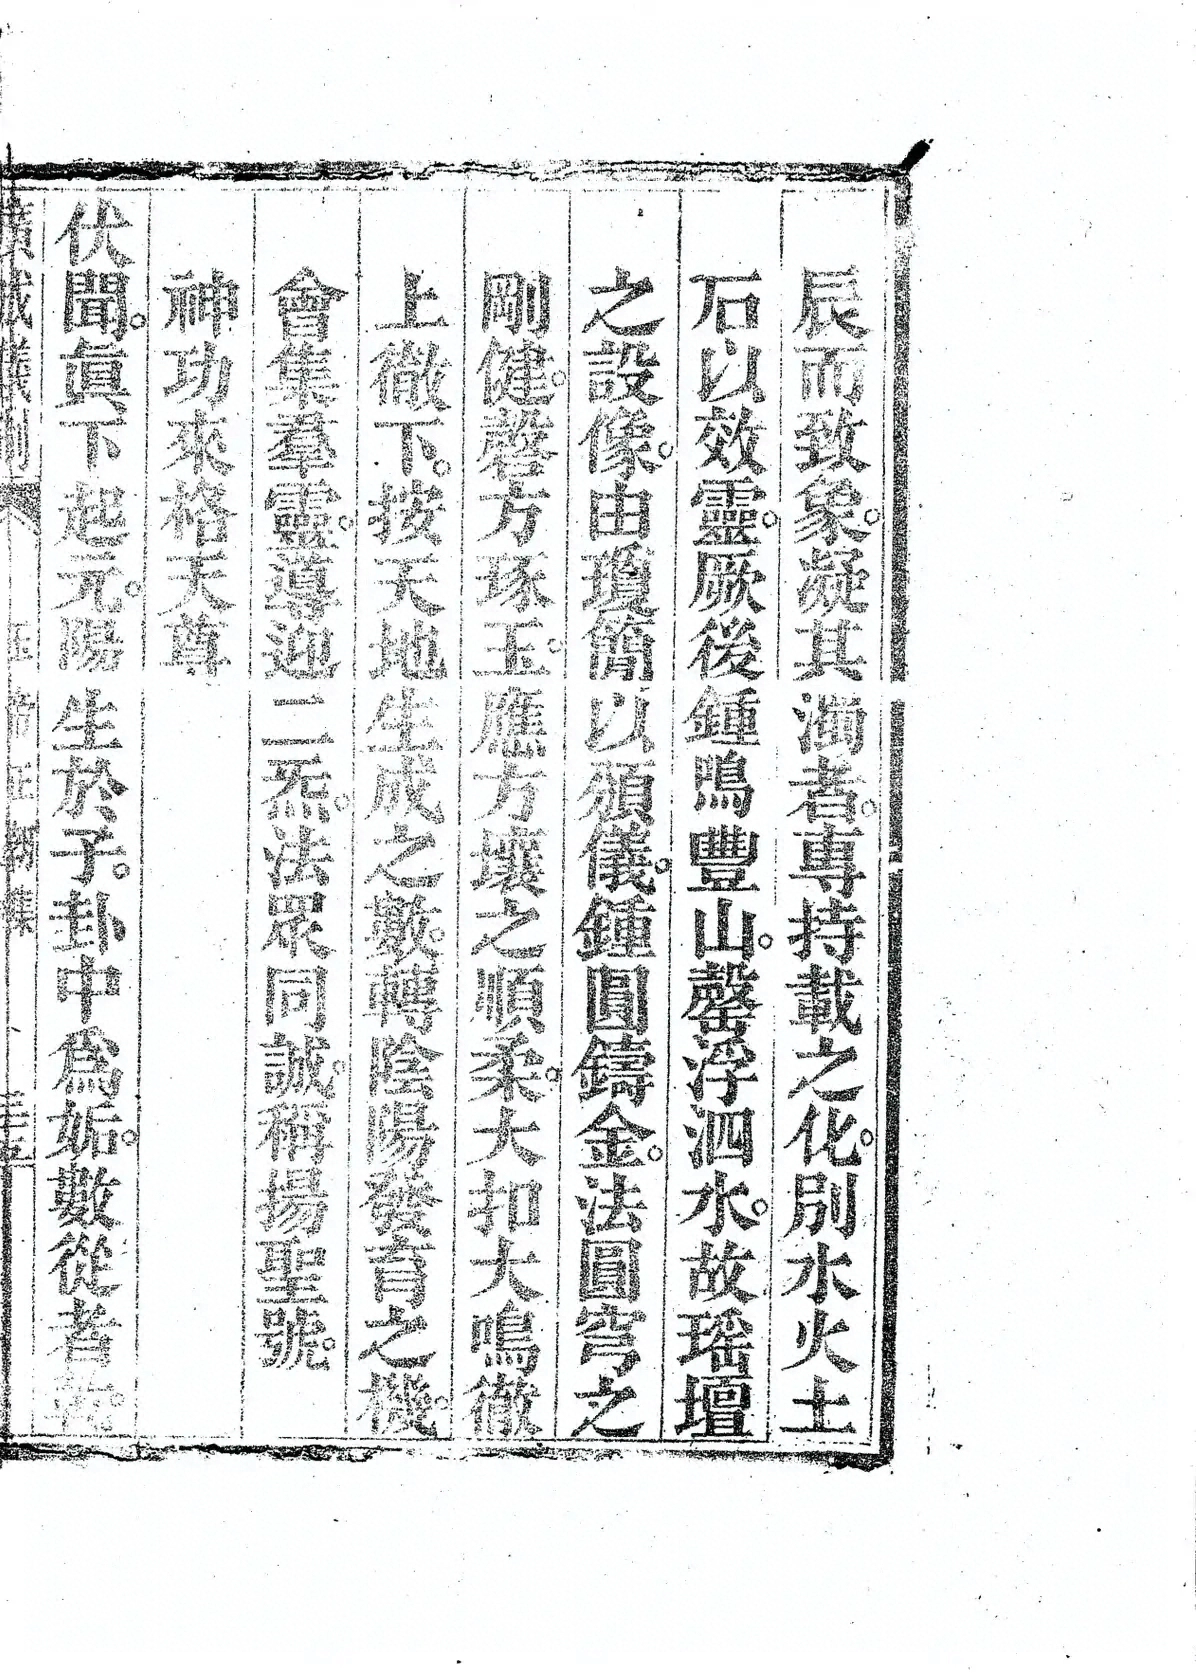 辰而致象。凝其濁者。專持載之化。別水火土
石以效靈。厥後鍾鳴豐山。罄浮泗水。故瑶壇
之設像。由瓊簡以頒儀。鍾圓鑄金。法圓穹之
剛健。磬方琢玉。應方壤之順柔。大扣大鳴徹
上徹下。按天地生成之數。轉陰陽發育之機。
會集羣靈。導迎二炁。法眾同誠。稱揚聖號。
神功來格天尊
伏聞。眞下起元。陽生於子。卦中爲姤。數從者
廣成儀制 正朝集